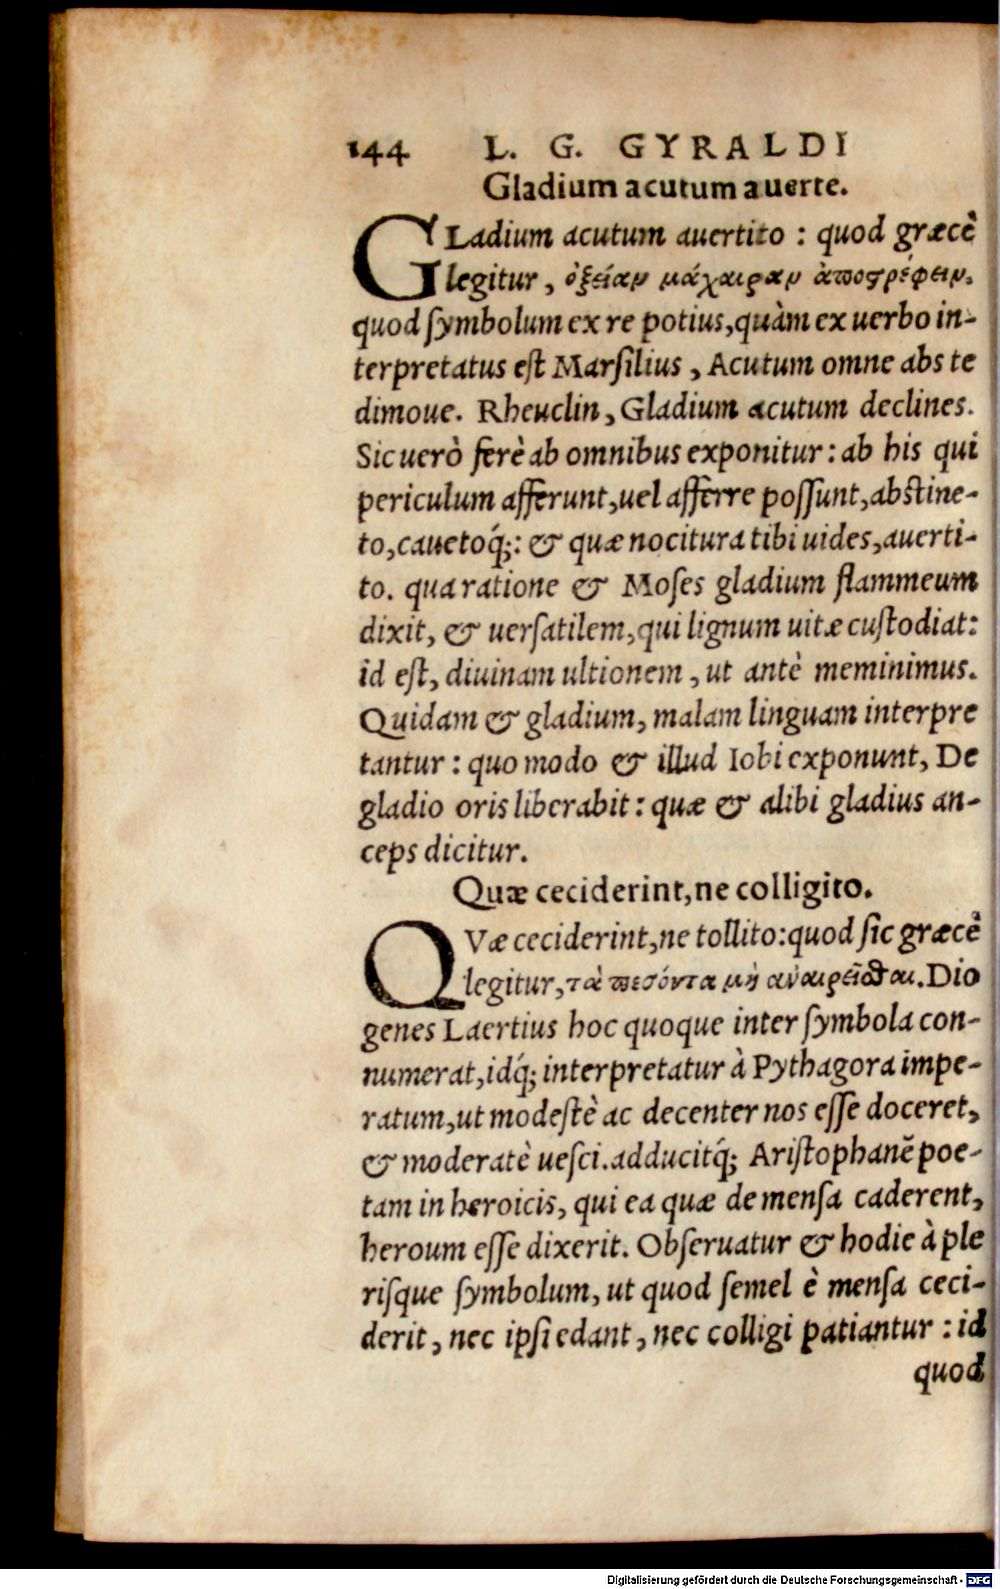 144 L. G. GYRALDI
Gladium acutum auerte.
GLadium acutum auertito : quod græcè
legitur, ὀξεῖαν μάχαιραν ἀποςρέφειν.
quod ſymbolum ex re potius, quàm ex uerbo in-
terpretatus eſt Marſilius, Acutum omne abs te
dimoue. Rheuclin, Gladium acutum declines.
Sic uerò ferè ab omnibus exponitur: ab his qui
periculum afferunt, uel afferre poſſunt, abſtine-
to, cauetoq́;: & quæ nocitura tibi uides, auerti-
to. qua ratione & Moſes gladium flammeum
dixit, & uerſatilem, qui lignum uitæ cuſtodiat:
id eſt, diuinam ultionem, ut antè meminimus.
Quidam & gladium, malam linguam interpre
tantur: quo modo & illud Iobi exponunt, De
gladio oris liberabit: quæ & alibi gladius an-
ceps dicitur.
Quæ ceciderint, ne colligito.
QVæ ceciderint, ne tollito: quod ſic græcè
legitur, τὰ πεσόντα μὴ ἀναιρεῖσθαι. Dio
genes Laertius hoc quoque inter ſymbola con-
numerat, idq́; interpretatur à Pythagora impe-
ratum, ut modeſtè ac decenter nos eſſe doceret,
& moderatè ueſci. adducitq́; Ariſtophanē poe-
tam in heroicis, qui ea quæ de menſa caderent,
heroum eſſe dixerit. Obſeruatur & hodie à ple
riſque ſymbolum, ut quod ſemel è menſa ceci-
derit, nec ipſi edant, nec colligi patiantur: id
quod
Digitalisierung gefördert durch die Deutsche Forschungsgemeinschaft - DFG